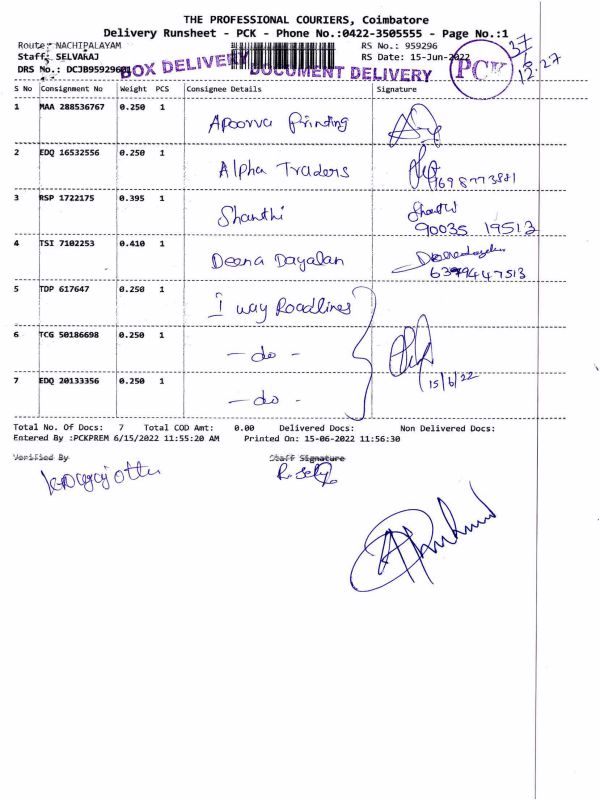 THE PROFESSIONAL COURIERS, Coimbatore
Delivery Runsheet - PCK - Phone No.:0422-3505555 - Page No.:1
Route: NACHIPALAYAM RS No.: 959296
Staff: SELVARAJ RS Date: 15-Jun-2022
DRS No.: DCJB959296
BOX DELIVERY DOCUMENT DELIVERY PCK
37
12.27
S No Consignment No Weight PCS Consignee Details Signature
1 MAA 288536767 0.250 1 Apoorva Printing
2 EDQ 16532556 0.250 1 Alpha Traders
3 RSP 1722175 0.395 1 Shanthi Shanthi
90035 19513
4 TSI 7102253 0.410 1 Deena Dayalan Deenadayalan
6379447513
5 TDP 617647 0.250 1 I way Roadlines
6 TCG 50186698 0.250 1 - do -
15/6/22
7 EDQ 20133356 0.250 1 - do -
Total No. Of Docs: 7 Total COD Amt: 0.00 Delivered Docs: Non Delivered Docs:
Entered By :PCKPREM 6/15/2022 11:55:20 AM Printed On: 15-06-2022 11:56:30
Verified By Staff Signature